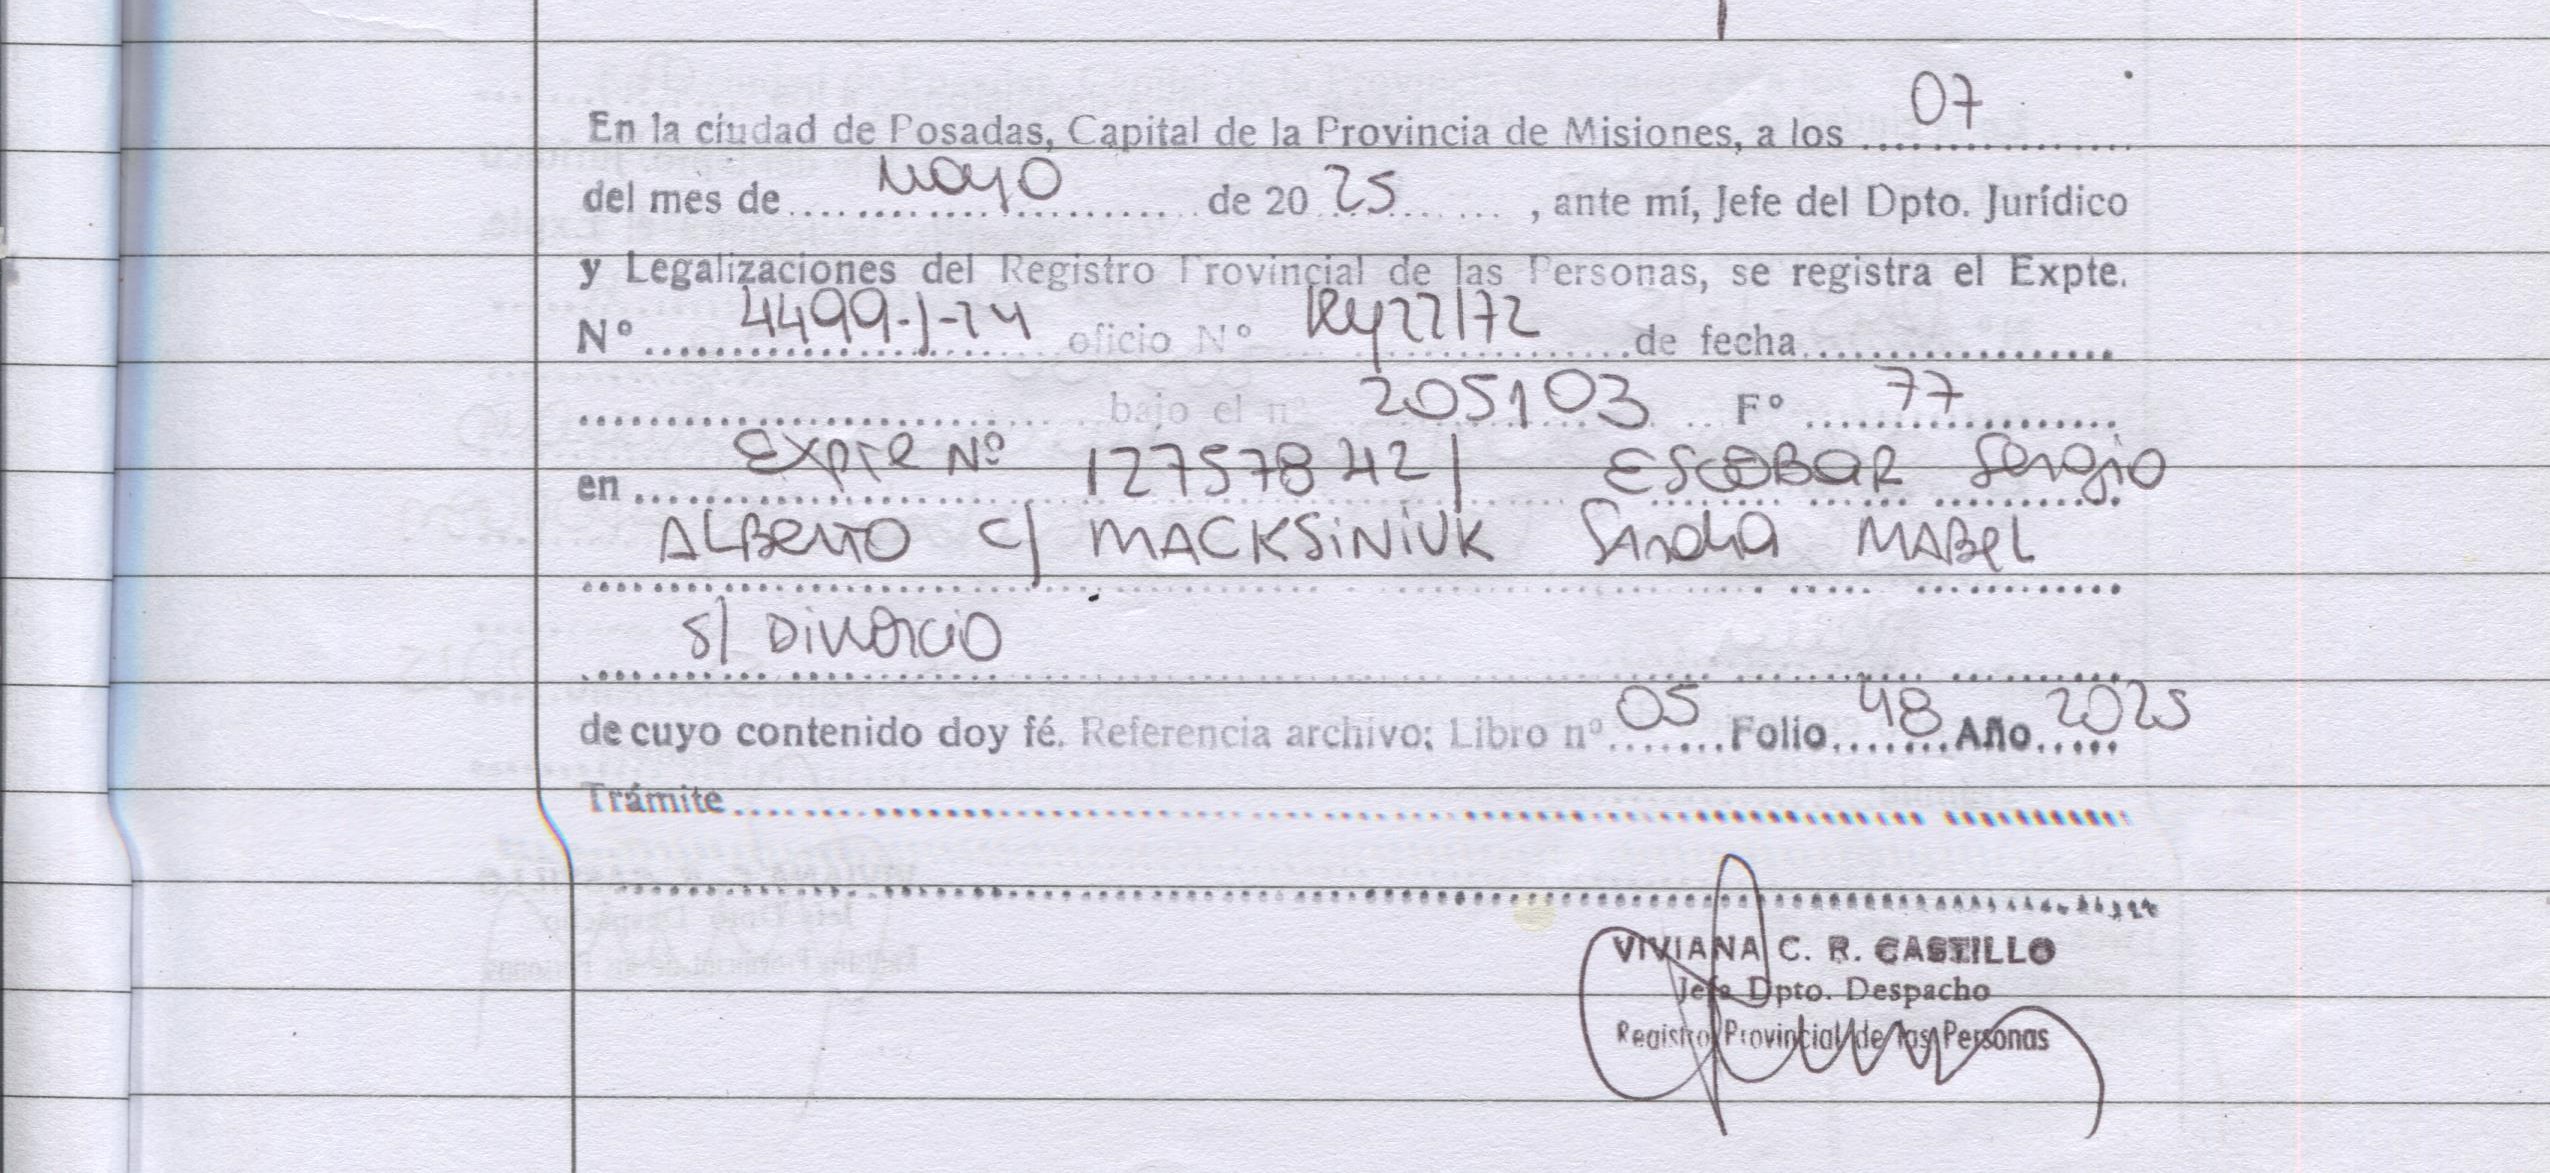 En la ciudad de Posadas, Capital de la Provincia de Misiones, a los 07
del mes de Mayo de 20 25, ante mí, Jefe del Dpto. Jurídico
y Legalizaciones del Registro Provincial de las Personas, se registra el Expte.
Nº 4499-J-24 oficio Nº Ley 22172 de fecha
bajo el nº 205103 Fº 77
en Expte Nº 12757842/ ESCOBAR Sergio
ALBERTO c/ MACKSINIUK Sandra MABEL
s/ DIVORCIO
de cuyo contenido doy fé. Referencia archivo: Libro nº 05 Folio 48 Año 2025
Trámite
VIVIANA C. R. CASTILLO
Jefa Dpto. Despacho
Registro Provincial de las Personas